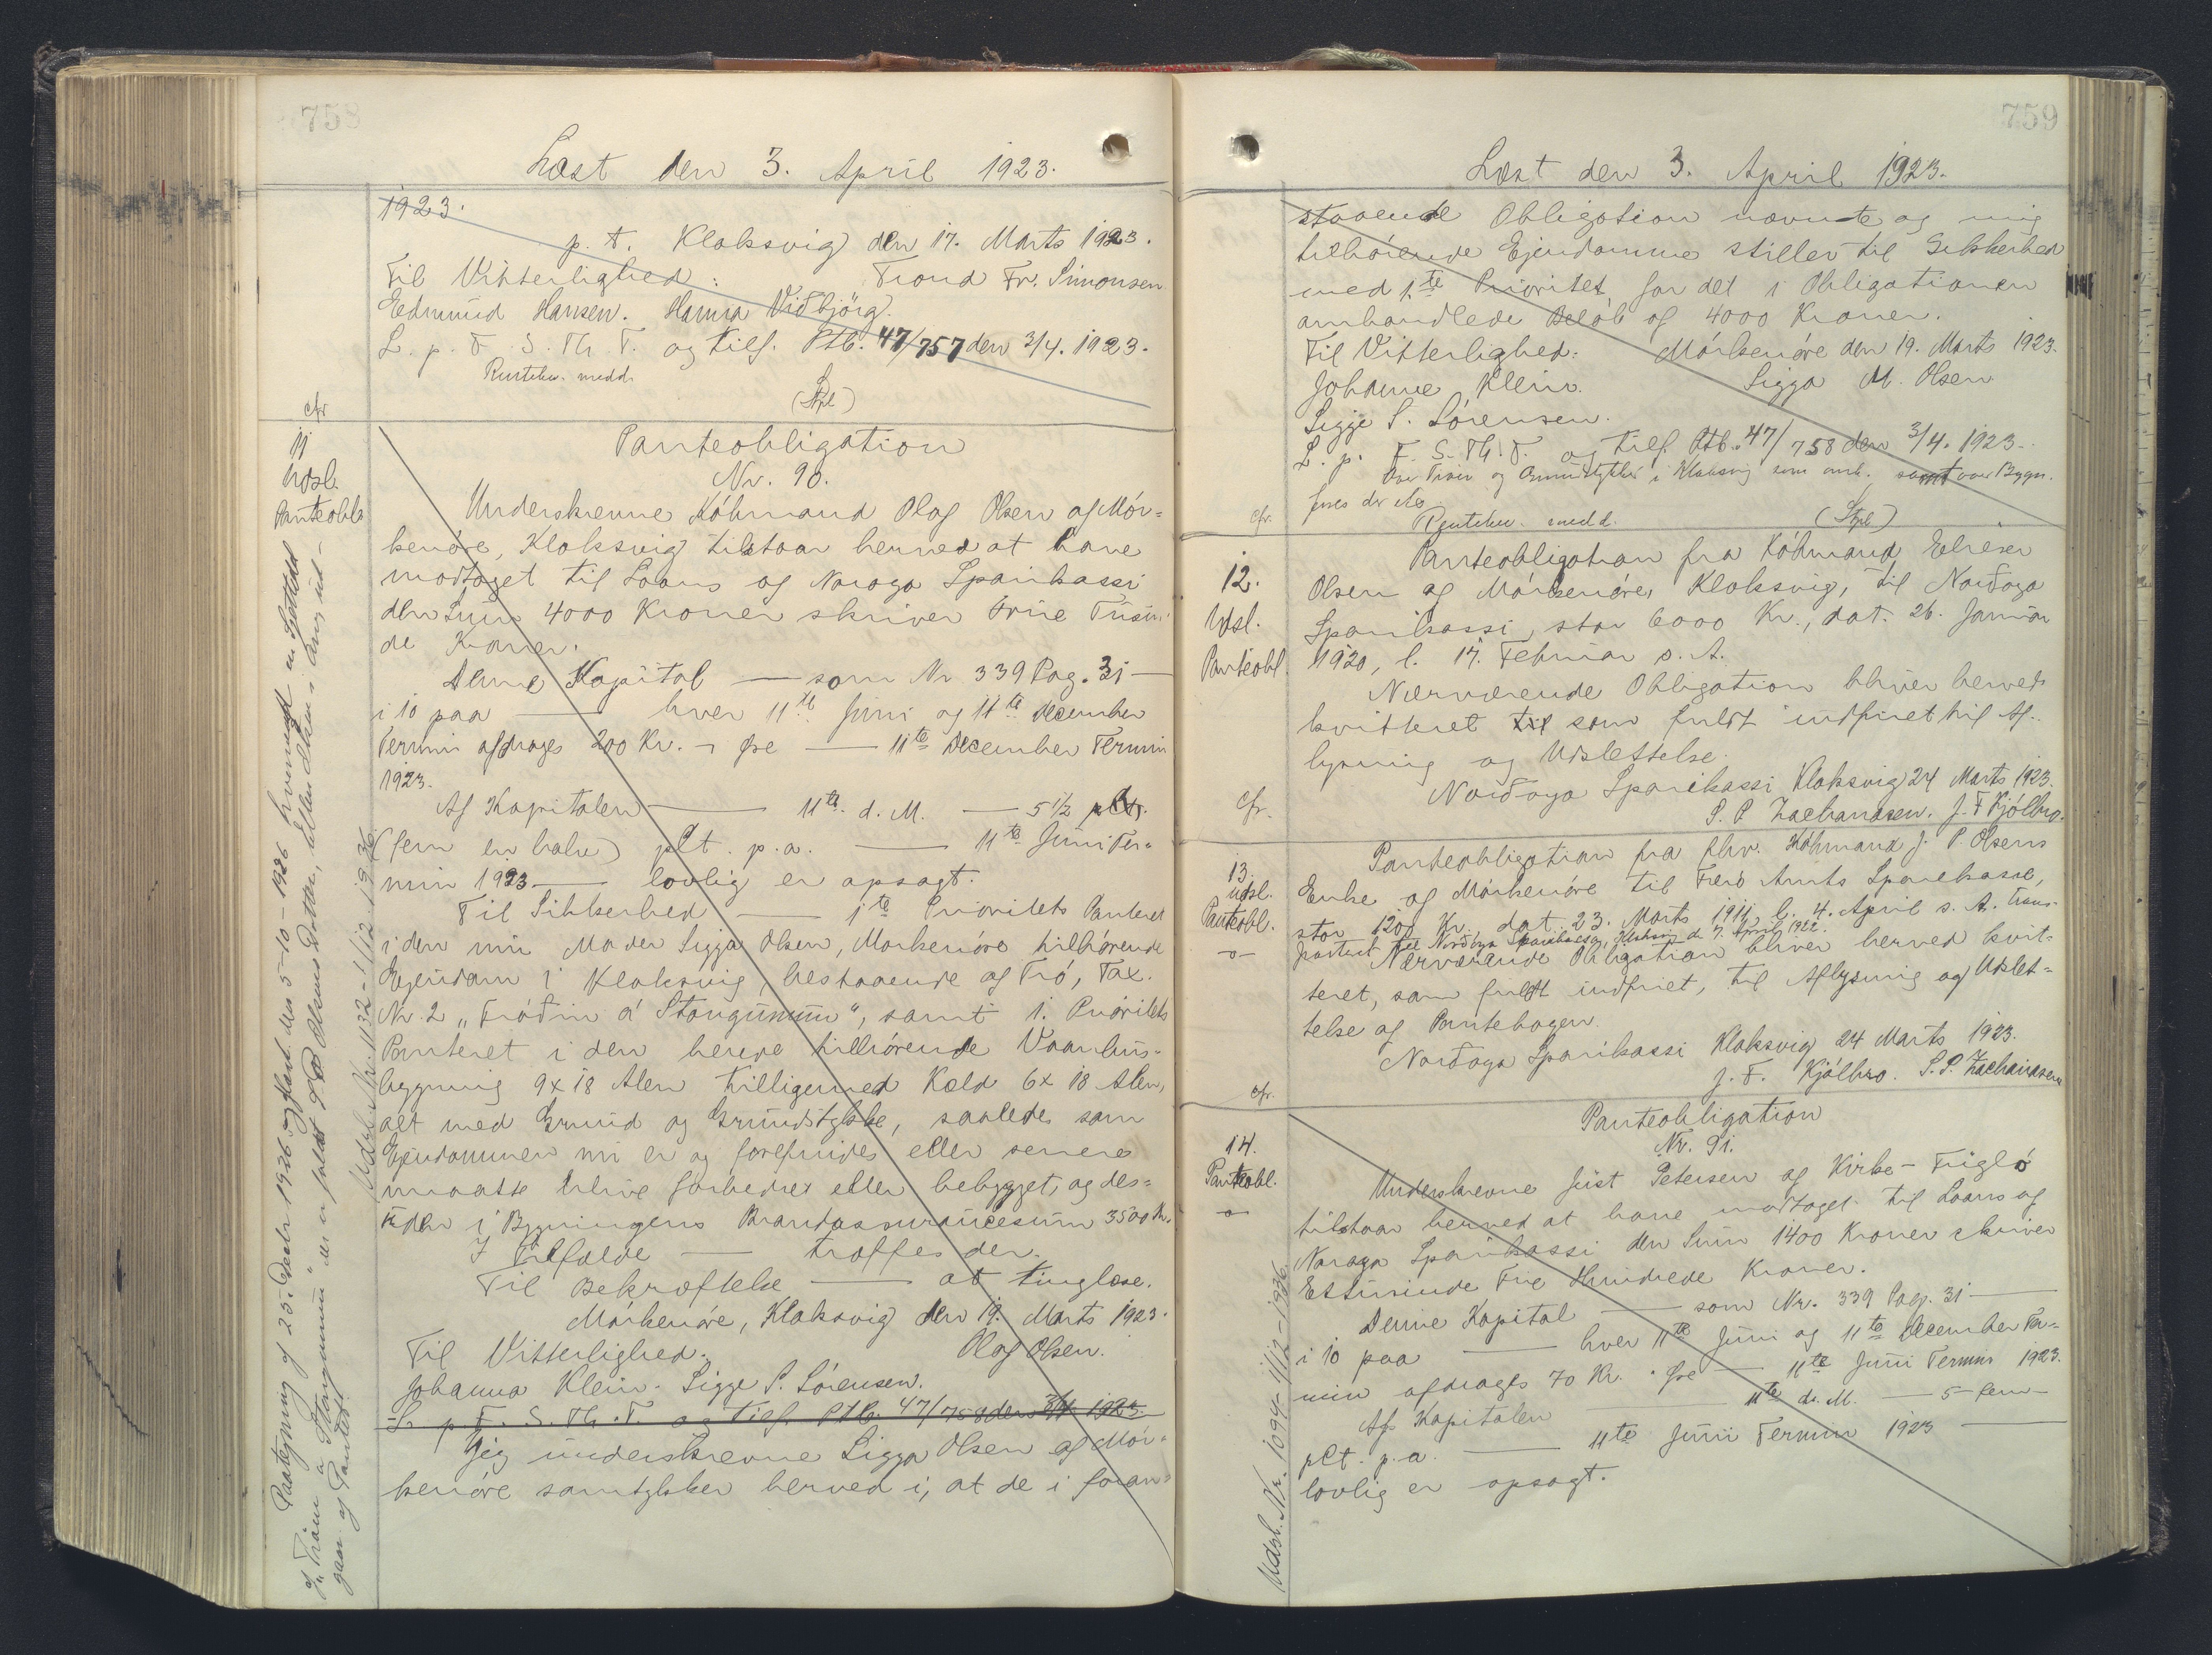 758
Læst den 3. April 1923.
1923.
p. t. Klaksvig den 17. Marts 1923.
Til Vitterlighed: Trond Fr. Simonsen
Edmund Hansen. Hanna Viðbjörg.
L. p. F. S. Th. T. og tilf. Ptb. 47/757 den 3/4. 1923.
medd.
(Stpl)
cfr
11
Udsl.
Panteobl.
Panteobligation
Nr. 90.
Underskrevne Kóbmand Olaf Olsen af Mór-
kenóre, Klaksvig tilstaar herved at have
modtaget til Laans af Noroya Sparikassi
den Sum 4000 Kroner skriver Fire Tusin-
de Kroner.
Denne Kapital — som Nr 339 Pag. 31 —
i 10 paa — hver 11te Juni og 11te December
Termin afdrages 200 Kr. - Øre — 11te December Termin
1923.
Af Kapitalen — 11te d. M. — 5 1/2 pCt.
(fem en halv) pCt. p.a. — 11te Juni Ter-
min 1923 — lovlig er opsagt.
Til Sikkerhed — 1te Prioritets Panteret
i den min Moder Sigga Olsen, Morkenóre tilhórende
Ejendom i Klaksvig, bestaaende af Tró, Tax.
Nr. 2 „Tróðin á Stongunum", samt 1. Prioritets
Panteret i den hende tilhórende Vaanhus-
bygning 9 x 18 Alen tilligemed Kæld 6 x 18 Alen,
alt med Grund og Grundstykke, saaledes som
Ejendommen nu er og forefindes eller senere
maatte blive forbedret eller bebygget, og des-
uden i Bygningens Brandassurancesum 3500 Kr.
I Tilfælde — træffes der.
Til Bekræftelse — at tinglæse.
Mórkenóre, Klaksvig den 19. Marts 1923.
Til Vitterlighed. Olaf Olsen.
Johanna Klein. Sigge S. Sórensen.
L. p. F. S. Th. T. og tilf. Ptb. 47/758 den 3/4 1923.
Jeg underskrevne Sigga Olsen af Mór-
kenóre samtykker herved i, at de i foran-
Paategning af 25. Decbr 1926 og 5-10-1926 hvorved en Lod
af "Tróun á Stongunum" der er solgt Olsens Datter, Ellen Olsen i Aug ud-
gaar af Pantet.
Udsl. Nr. 1132 - 1/12 1936
759
Læst den 3. April 1923.
staaende Obligation nævnte og mig
tilhórende Ejendomme stilles til Sikkerhed
med 1.te Prioritet, for det i Obligationen
omhandlede Belób af 4000 Kroner.
Til Vitterlighed: Mórkenóre den 19. Marts 1923.
Johanne Klein. Sigga M. Olsen
Sigge S. Sórensen.
L. p. F. S. Th. T. og tilf. Ptb. 47/758 den 3/4. 1923.
og Grundstykke i Klaksvig som omh. samt over Bygn.
medd. (Stpl)
cfr.
12.
Udsl.
Panteobl.
Panteobligation fra Kóbmand Elieser
Olsen af Mórkenóre, Klaksvig, til Norðoya
Sparikassi, stor 6000 Kr., dat. 26. Januar
1920, l. 17. Februar s. A.
Nærværende Obligation bliver herved
kvitteret til som fuldt indfriet til Af-
lysning og Udslettelse.
Norðoya Sparikassi Klaksvig 24 Marts 1923.
S. P. Zachariasen. J. F. Kjólbro.
cfr.
13.
Udsl.
Panteobl.
-o-
Panteobligation fra fhv. Kóbmand J. P. Olsens
Enke af Mórkenóre til Færó Amts Sparekasse,
stor 1200 Kr. dat. 23. Marts 1911, l. 4. April s. A. trans-
porteret til Norðoya Sparikassa, Klaksvig d. 7. April 1922.
Nærværende Obligation bliver herved kvit-
teret, som fuldt indfriet, til Aflysning og Udslet-
telse af Pantebogen.
Norðoya Sparikassi Klaksvig 24 Marts 1923.
J. F. Kjólbro. S. P. Zachariasen
cfr.
14.
Panteobl.
-o-
Panteobligation
Nr. 91.
Underskrevne Just Petersen af Kirke - Fugló
tilstaar herved at have modtaget til Laans af
Noroya Sparikassi den Sum 1400 Kroner skriver
Ettusinde Fire Hundrede Kroner.
Denne Kapital — som Nr. 339 Pag. 31 —
i 10 paa — hver 11te Juni og 11te December Ter-
min afdrages 70 Kr. - Øre — 11te Juni Termin 1923.
Af Kapitalen — 11te d. M. — 5 - fem -
pCt. p.a. — 11te Juni Termin 1923 —
lovlig er opsagt.
Udsl. Nr. 1094 - 1/12 - 1936.